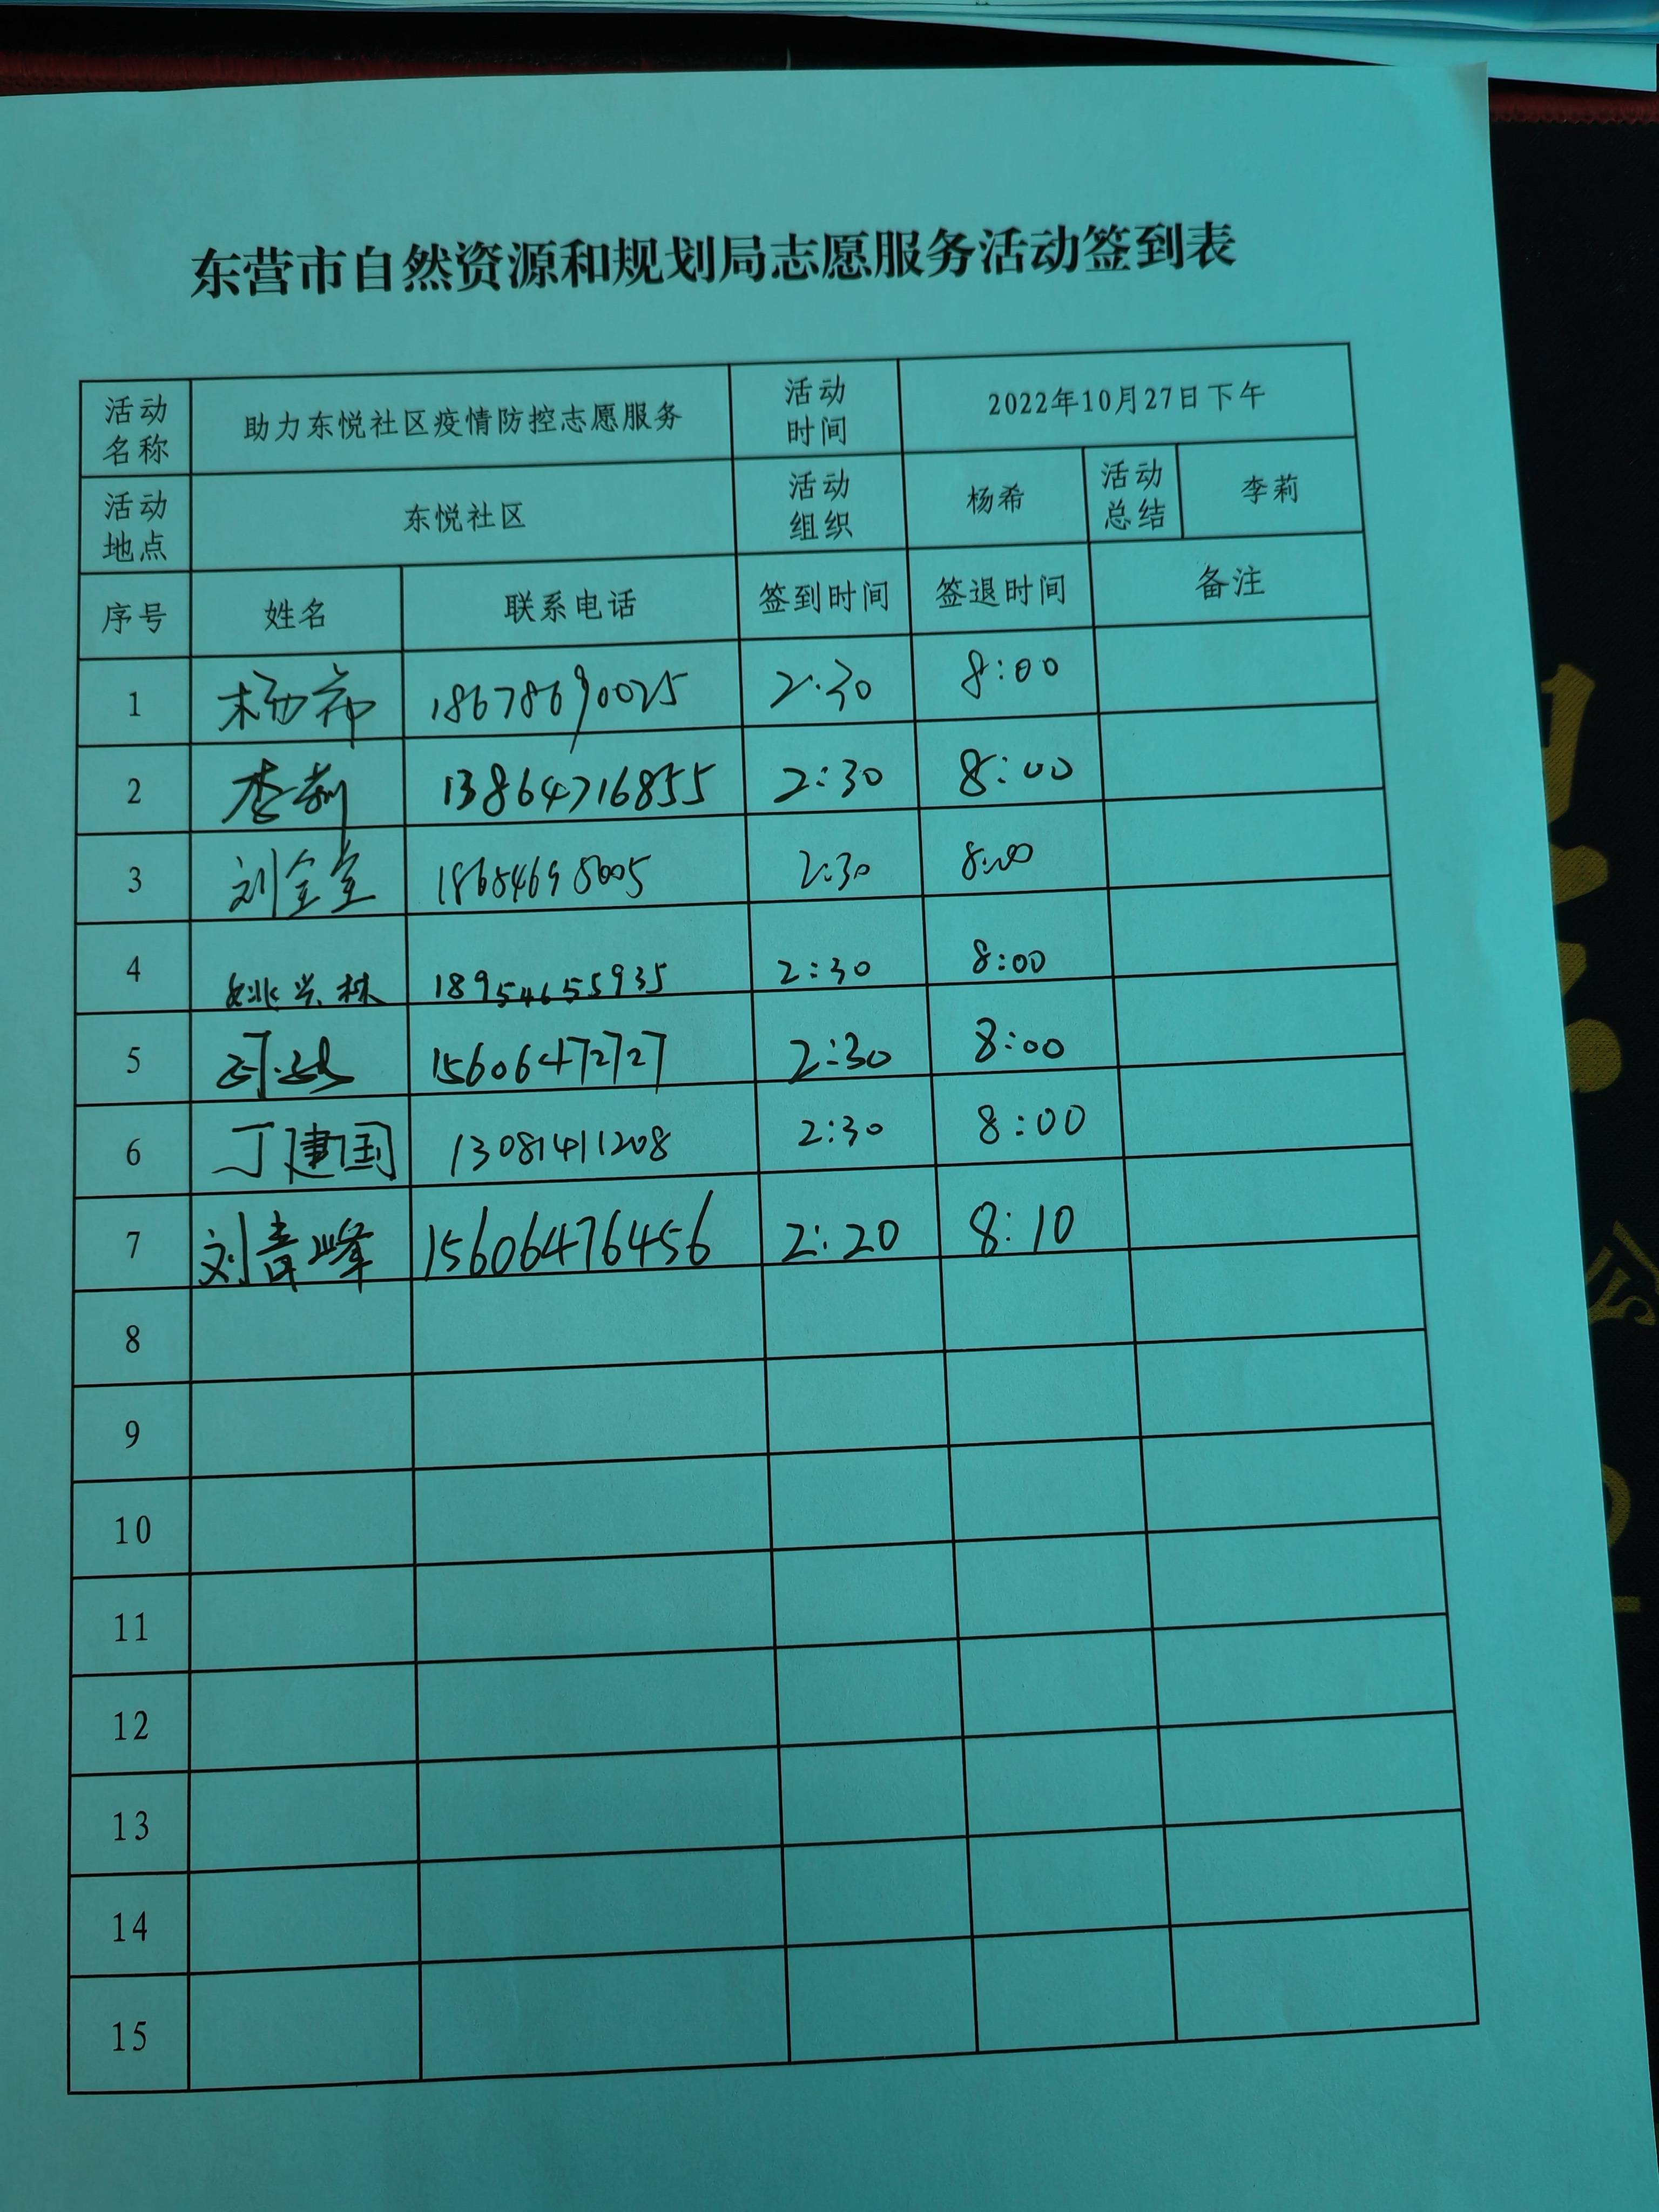 东营市自然资源和规划局志愿服务活动签到表
活动名称 助力东悦社区疫情防控志愿服务 活动时间 2022年10月27日下午
活动地点 东悦社区 活动组织 杨希 活动总结 李莉
序号 姓名 联系电话 签到时间 签退时间 备注
1 杨希 18678690025 2:30 8:00
2 李莉 13864716855 2:30 8:00
3 18654698005 2:30 8:00
4 姚兴林 18954655935 2:30 8:00
5 15606472727 2:30 8:00
6 丁建国 13081411208 2:30 8:00
7 刘青峰 15606476456 2:20 8:10
8
9
10
11
12
13
14
15